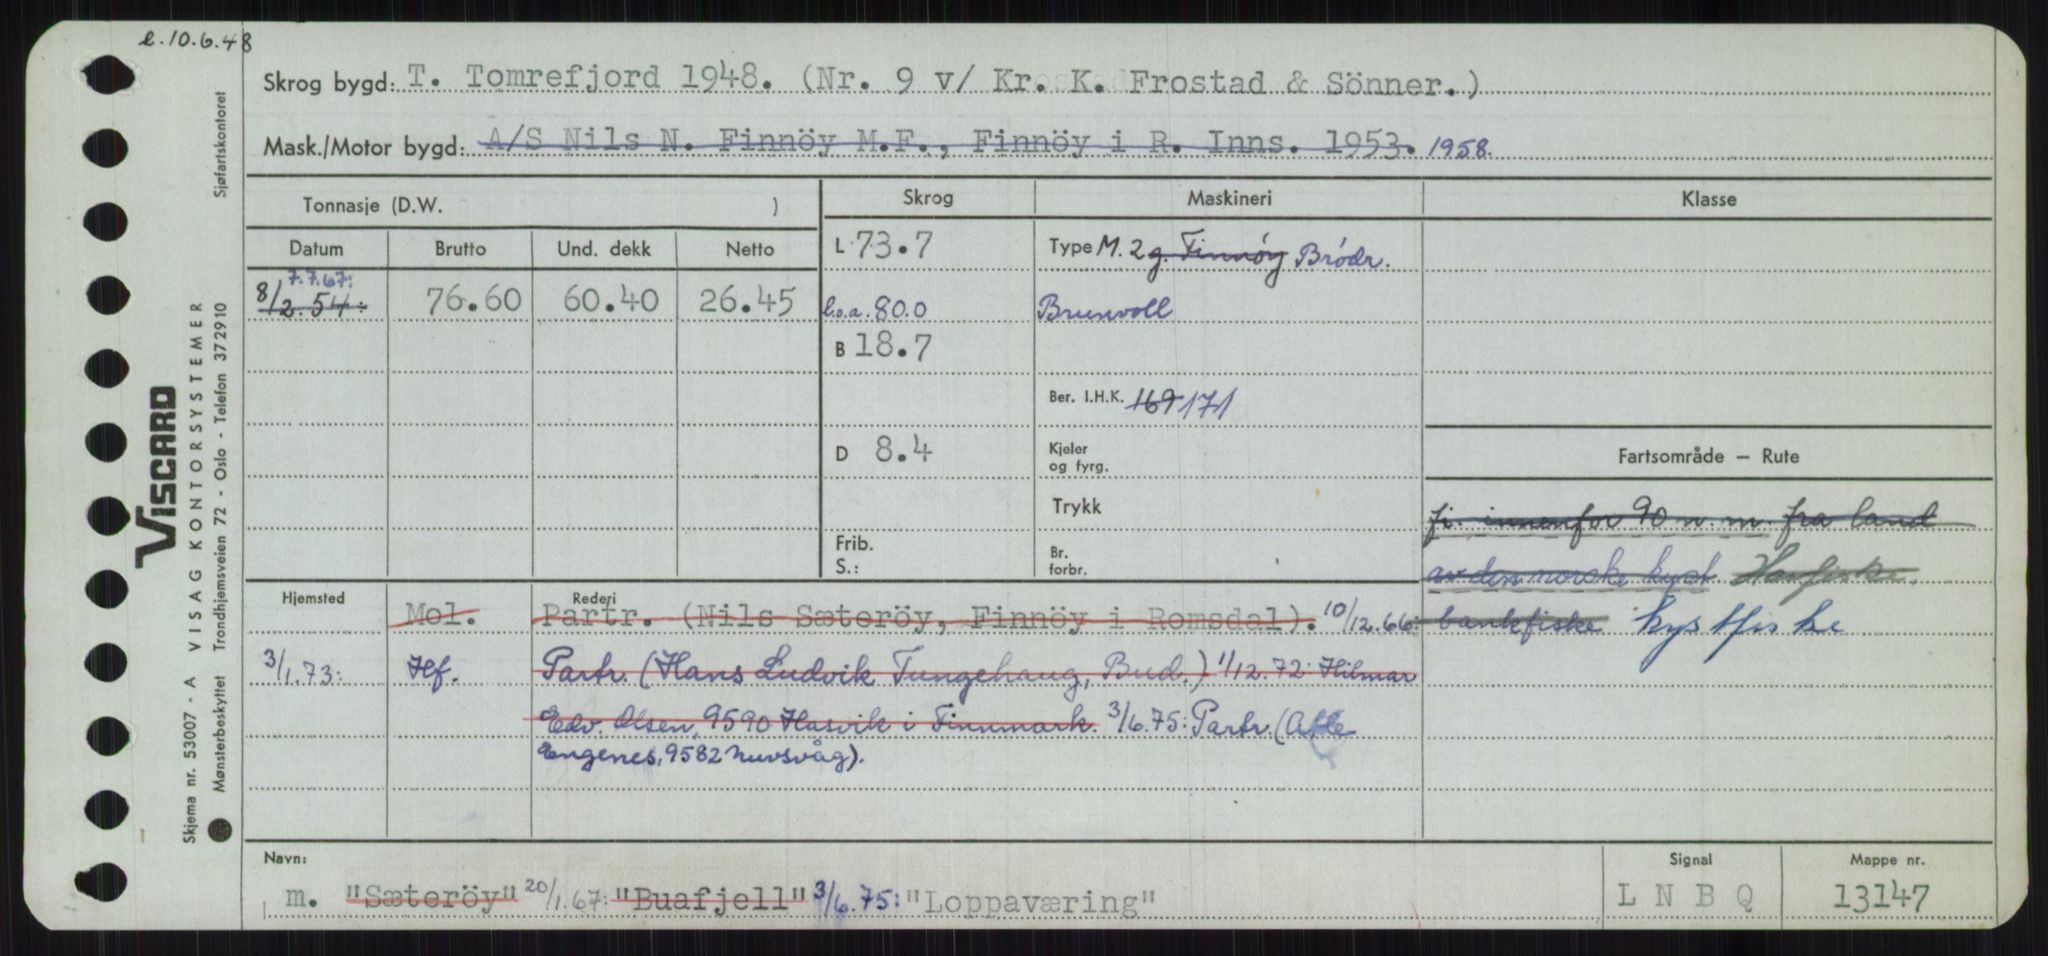 e. 10.6.48
Skrog bygd: T. Tomrefjord 1948. (Nr. 9 v/ Kr. K. Frostad & Sönner.)
Mask./Motor bygd: A/S Nils N. Finnöy M.F., Finnöy i R. Inns. 1953. 1958.
Tonnasje (D.W. )
Skrog
Maskineri
Klasse
Datum
Brutto
Und. dekk
Netto
L 73.7
Type M. 2 g. Finnöy Brödr.
7.7.67:
8/2.54:
76.60
60.40
26.45
l.o.a. 80.0
Brunvoll
B 18.7
Ber. I.H.K. 169 171
D 8.4
Kjeler
og fyrg.
Fartsområde – Rute
Trykk
fi. innenfor 90 n.m. fra land
Frib.
S.:
Br.
forbr.
av den norske kyst Havfiske.
Hjemsted
Rederi
Mol.
Partr. (Nils Sæteröy, Finnöy i Romsdal). 10/12.66:
bankfiske kystfiske
3/1.73:
Hf.
Partr. (Hans Ludvik Tungehaug, Bud.) 1/12.72: Hilmar
Edv. Olsen, 9590 Hasvik i Finnmark. 3/6.75: Partr. (Atle
Engenes, 9582 Nuvsvåg).
Navn:
Signal
Mappe nr.
m. "Sæteröy" 20/1.67: "Buafjell" 3/6.75: "Loppaværing"
L N B Q
13147
VISCARD
VISAG KONTORSYSTEMER
Skjema nr. 53007 - A
Mønsterbeskyttet Trondhjemsveien 72 - Oslo - Telefon 372910
Sjøfartskontoret